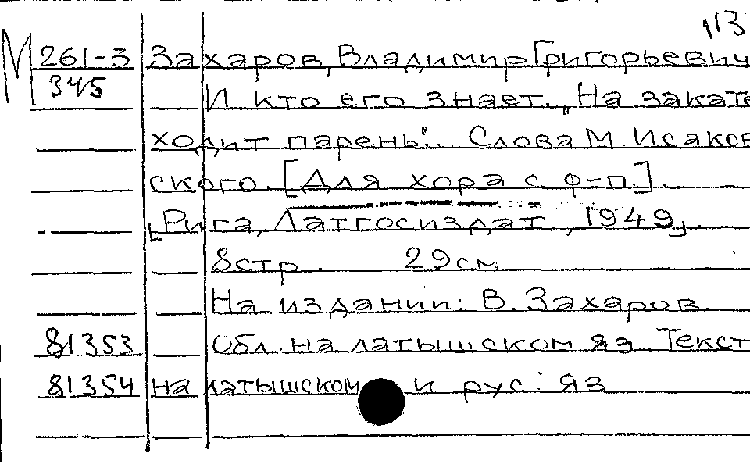 113
М 261-3 Захаров, Владимир Григорьевич
345 И кто его знает. „На закате
ходит парень". Слова М. Исаков-
ского. [Для хора с ф-п].
[Рига, Латгосиздат, 1949].
8 стр. 29 см.
На издании: В. Захаров
81353 Обл. на латышском яз. Текст
81354 на латышском и рус. яз